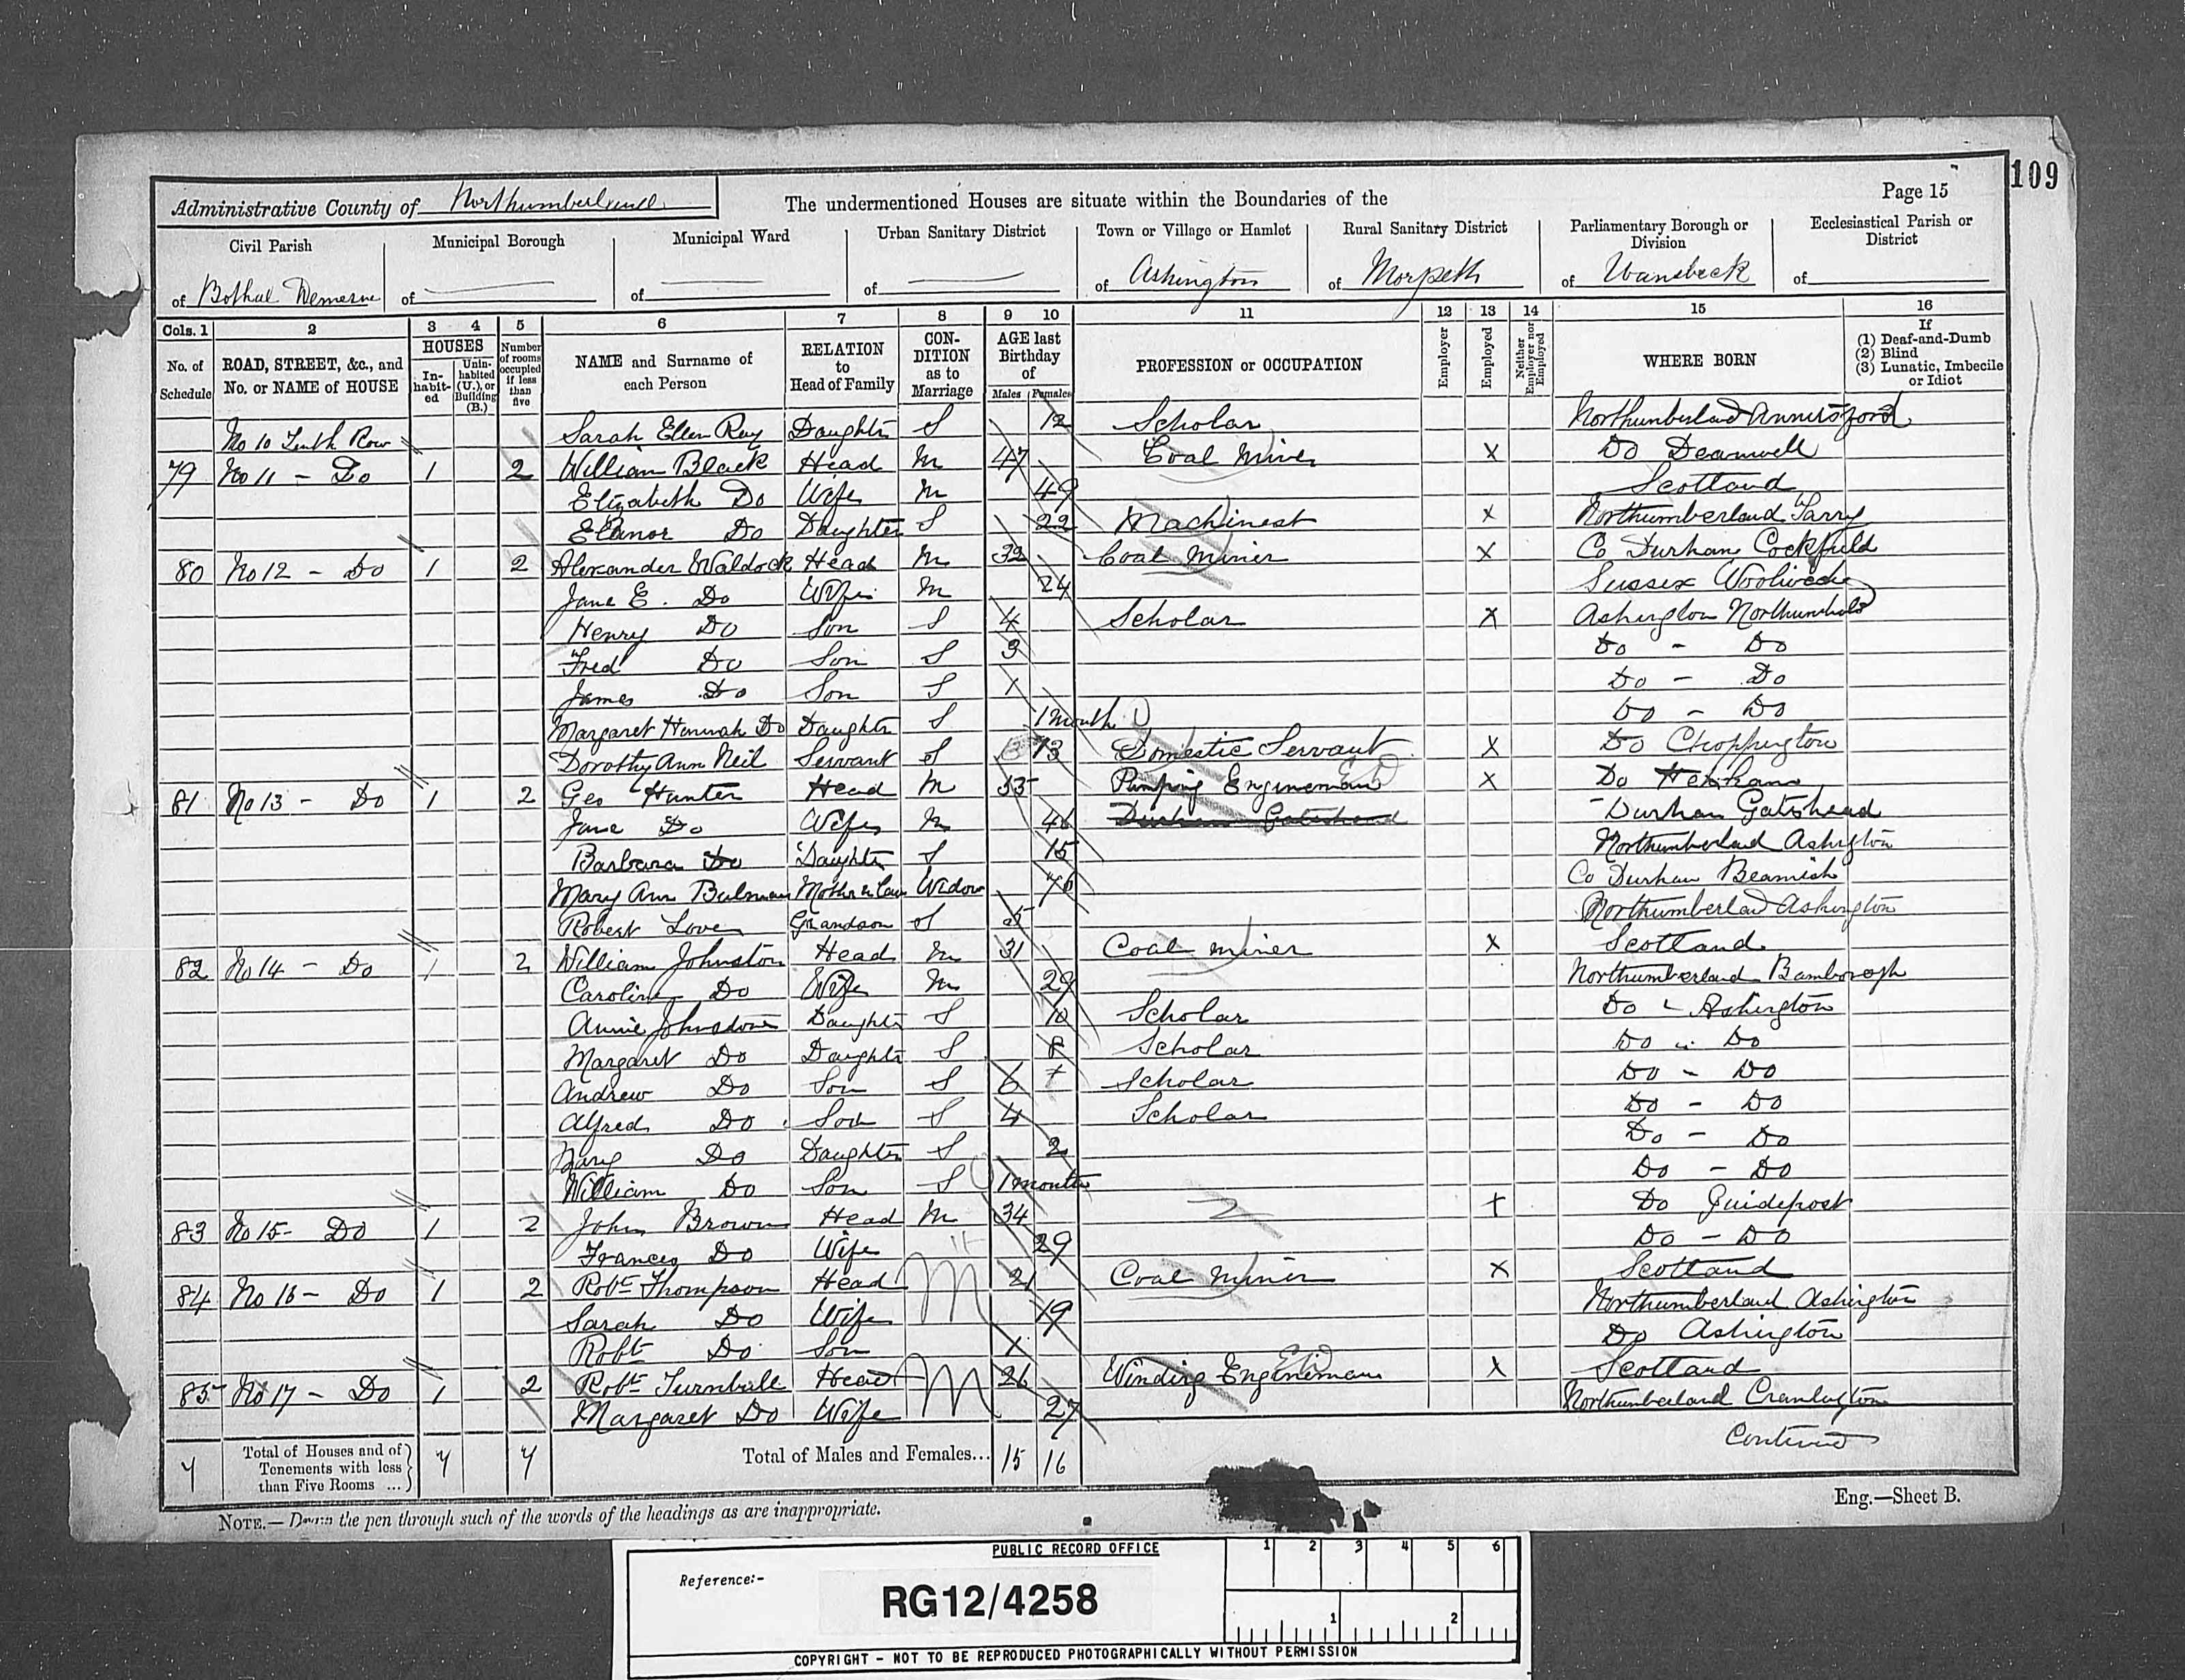 109
Administrative County of Northumberland
The undermentioned Houses are situate within the Boundaries of the
Page 15
Civil Parish
Municipal Borough
Municipal Ward
Urban Sanitary District
Town or Village or Hamlet
Rural Sanitary District
Parliamentary Borough or Division
Ecclesiastical Parish or District
of Bothal Demesne of of of of Ashington of Morpeth of Wansbeck of
Cols. 1 2 3 4 5 6 7 8 9 10 11 12 13 14 15 16
No. of Schedule
ROAD, STREET, &c., and No. or NAME of HOUSE
HOUSES
In-habit-ed
Unin-habited (U.), or Building (B.)
Number of rooms occupied if less than five
NAME and Surname of each Person
RELATION to Head of Family
CON-DITION as to Marriage
AGE last Birthday of
Males Females
PROFESSION or OCCUPATION
Employer
Employed
Neither Employer nor Employed
WHERE BORN
If
(1) Deaf-and-Dumb
(2) Blind
(3) Lunatic, Imbecile or Idiot
No 10 Tenth Row Sarah Ellen Ray Daughter S 12 Scholar Northumberland Annitsford
79 No 11 - Do 1 2 William Black Head M 47 Coal Miner X Do
Elizabeth Do Wife M 49 Scotland
Eleanor Do Daughter S 22 Machinest X Northumberland
80 No 12 - Do 1 2 Alexander Waldock Head M 32 Coal Miner X Co Durham Cockfield
Jane E. Do Wife M 24 Sussex
Henry Do Son S 4 Scholar X Ashington
Fred Do Son S 3 Do - Do
James Do Son S 1 Do - Do
Margaret Hannah Do Daughter S 1 month Do - Do
Dorothy Ann Neil Servant S 13 Domestic Servant X Do Choppington
81 No 13 - Do 1 2 Geo Hunter Head M Pumping Engineman X Do Hexham
Jane Do Wife M 46 Durham Gateshead Durham Gateshead
Barbara Do Daughter S 15 Northumberland Ashington
Mary Ann Bulman Mother in Law Widow 76 Co Durham Beamish
Robert Love Grandson S Northumberland Ashington
82 No 14 - Do 1 2 William Johnston Head M 31 Coal miner X Scotland
Caroline Do Wife M 29 Northumberland Bamborogh
Annie Johnstone Daughter S 10 Scholar Do - Ashington
Margaret Do Daughter S 8 Scholar Do - Do
Andrew Do Son S 6 Scholar Do - Do
Alfred Do Son S 4 Scholar Do - Do
Mary Do Daughter S 2 Do - Do
William Do Son S 1 month Do - Do
83 No 15 - Do 1 2 John Brown Head M 34 X Do Guidepost
Frances Do Wife 29 Do - Do
84 No 16 - Do 1 2 Robt Thompson Head M 21 Coal Miner X Scotland
Sarah Do Wife 19 Northumberland Ashington
Robt Do Son 1 Do Ashington
85 No 17 - Do 1 2 Robt Turnbull Head M 26 Winding Engineman X Scotland
Margaret Do Wife 27 Northumberland Cramlington
Continued
7 Total of Houses and of Tenements with less than Five Rooms ... 7 7 Total of Males and Females... 15 16
Eng.—Sheet B.
NOTE.— Draw the pen through such of the words of the headings as are inappropriate.
PUBLIC RECORD OFFICE
1 2 3 4 5 6
Reference:-
RG12/4258
1 2
COPYRIGHT - NOT TO BE REPRODUCED PHOTOGRAPHICALLY WITHOUT PERMISSION